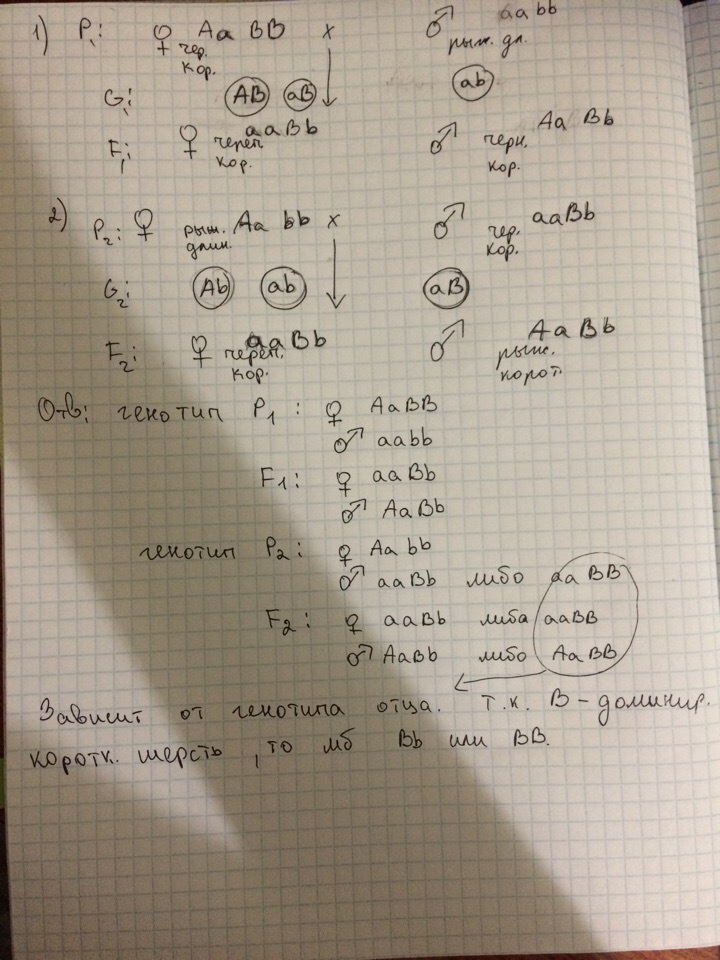 1) P₁: ♀ Aa BB x ♂ aa bb
чер. кор. рыж. дл.
G₁: AB aB ab
F₁: ♀ aaBb ♂ Aa Bb
череп. кор. черн. кор.
2) P₂: ♀ рыж. Aa bb x ♂ чер. aaBb
длин. кор.
G₂: Ab ab aB
F₂: ♀ aaBb ♂ AaBb
череп. кор. рыж. корот.
Отв: генотип P₁: ♀ AaBB
♂ aabb
F₁: ♀ aaBb
♂ AaBb
генотип P₂: ♀ Aa bb
♂ aaBb либо aaBB
F₂: ♀ aaBb либо aaBB
♂ AaBb либо AaBB
Зависит от генотипа отца. Т.к. B – доминир.
коротк. шерсть, то мб Bb или BB.